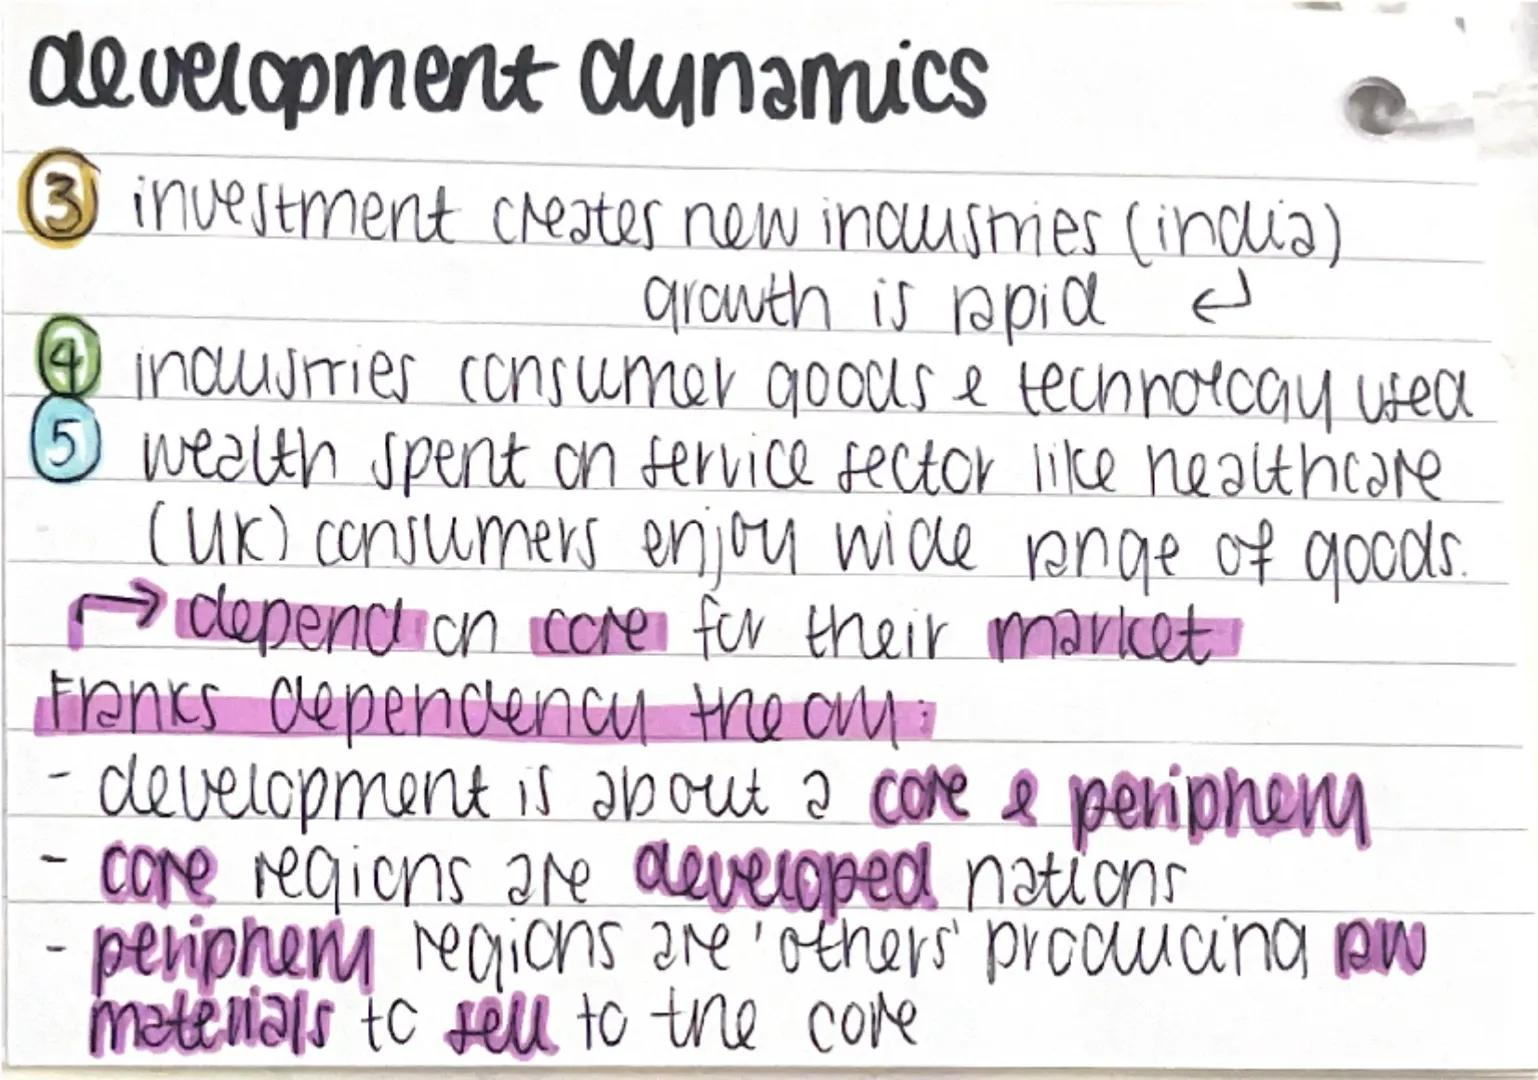 development dynamics
3 investment creates new industries (india)
growth is rapid ↵
4 industries consumer goods & technology used
5 wealth spent on service sector like healthcare
(UK) consumers enjoy wide range of goods.
→ depend on core for their market
Franks dependency theory:
- development is about a core & periphery
- core regions are developed nations
- periphery regions are 'others' producing raw
materials to sell to the core